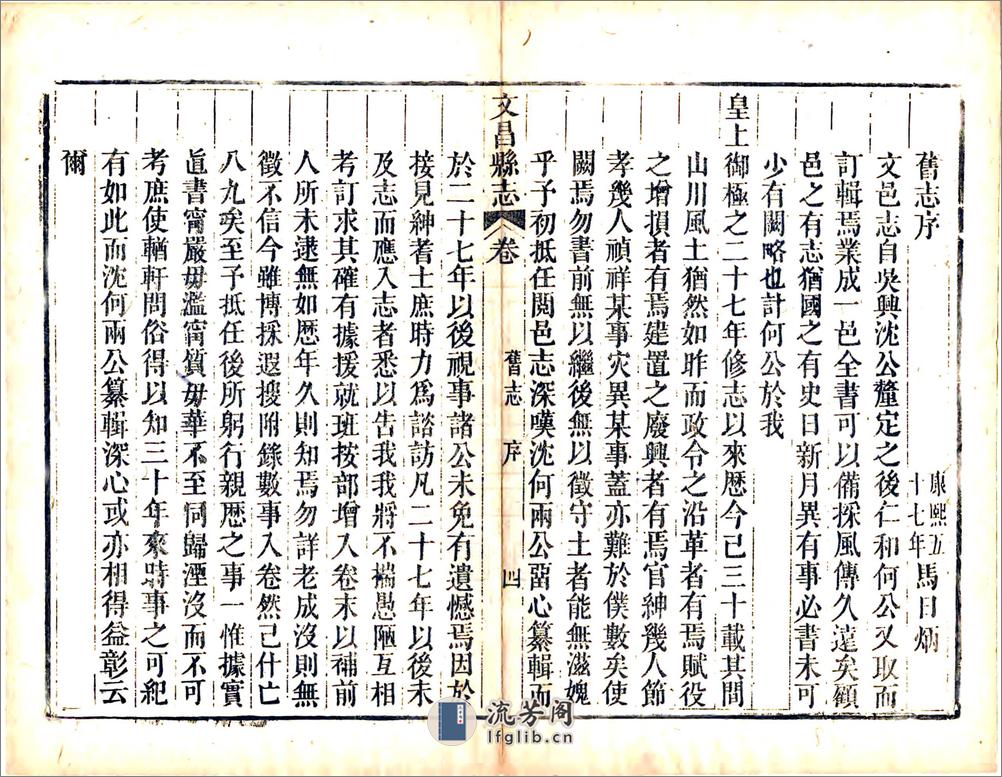 舊志序
康熙五十七年馬日炳
文邑志自吳興沈公釐定之後仁和何公又取而
訂輯焉業成一邑全書可以備採風傳久遠矣顧
邑之有志猶國之有史日新月異有事必書未可
少有闕略也計何公於我
皇上御極之二十七年修志以來歷今已三十載其間
山川風土猶然如昨而政令之沿革者有焉賦役
之增損者有焉建置之廢興者有焉官紳幾人節
孝幾人禎祥某事灾異某事蓋亦難於僕數矣使
闕焉勿書前無以繼後無以徵守土者能無滋媿
乎予初抵任閱邑志深嘆沈何兩公畱心纂輯而
文昌縣志 卷 舊志 序 四
於二十七年以後視事諸公未免有遺憾焉因於
接見紳耆士庶時力爲諮訪凡二十七年以後未
及志而應入志者悉以告我我將不揣愚陋互相
考訂求其確有據援就班按部增入卷末以補前
人所未逮無如歷年久則知焉勿詳老成沒則無
徵不信今雖博採遐搜附錄數事入卷然已什亡
八九矣至予抵任後所躬行親歷之事一惟據實
直書甯嚴毋濫甯質毋華不至同歸湮沒而不可
考庶使輶軒問俗得以知三十年來時事之可紀
有如此而沈何兩公纂輯深心或亦相得益彰云
爾
流芳阁
lfglib.cn